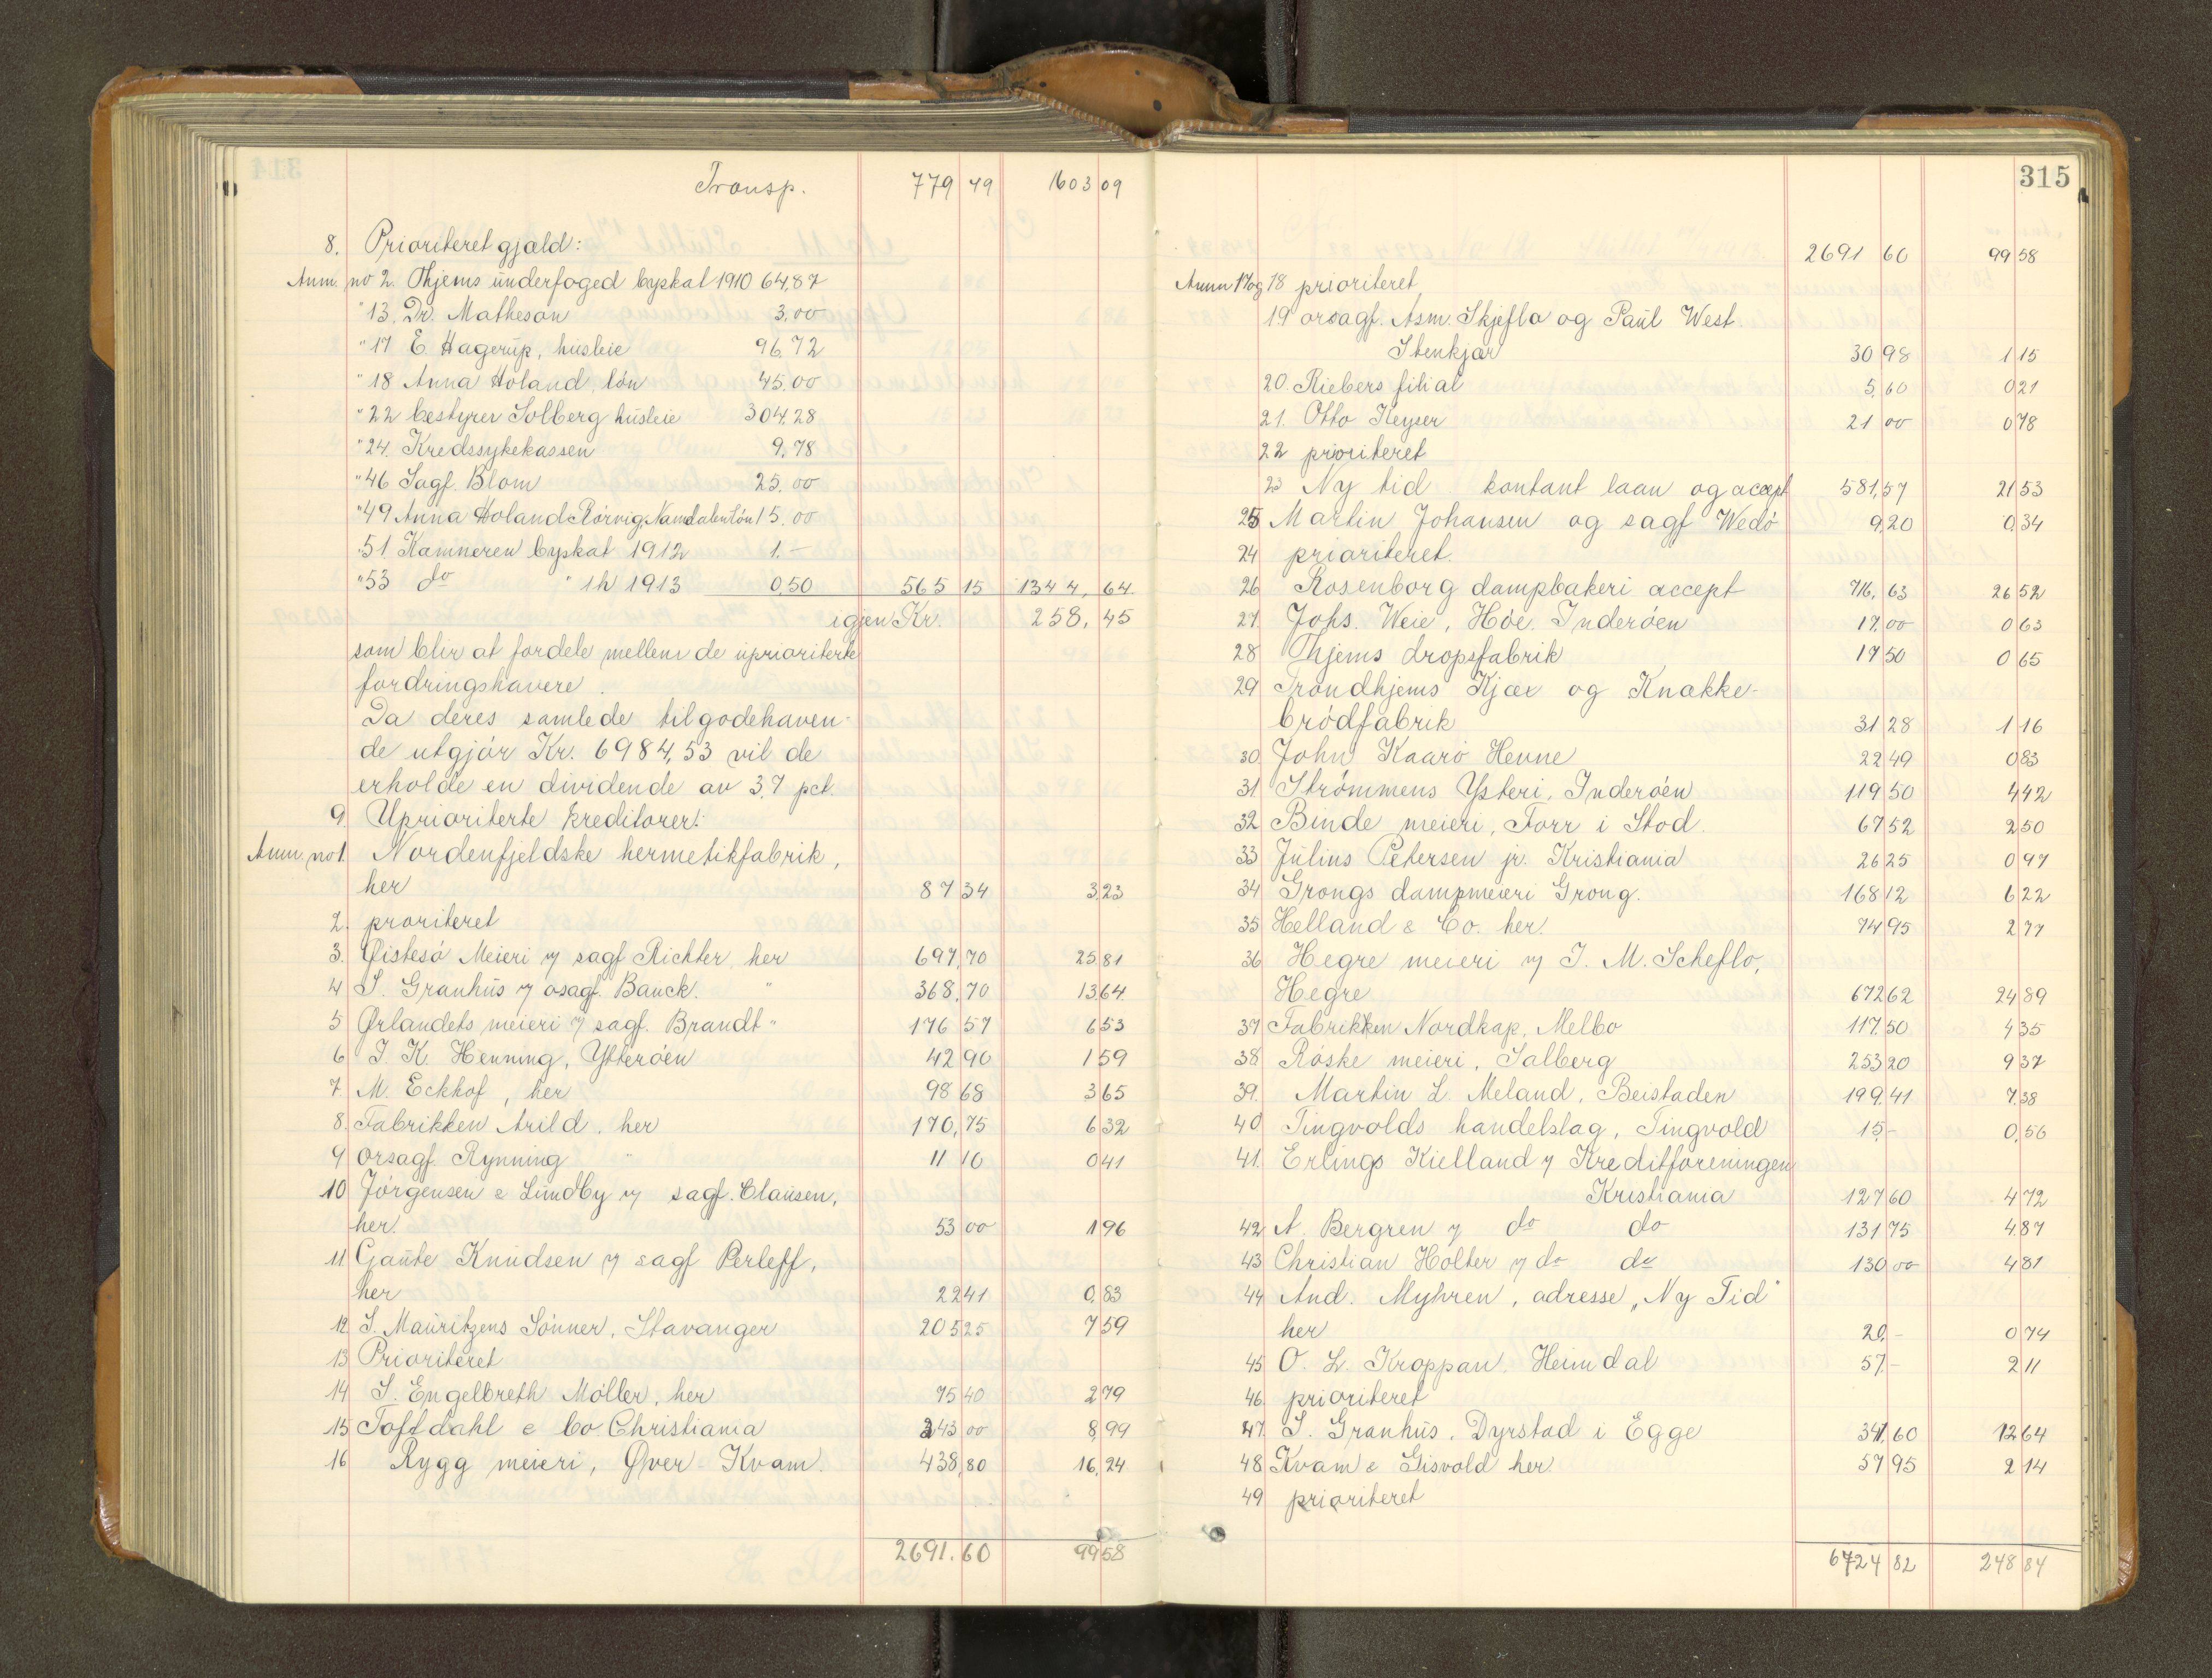 Transp. 779 49 1603 09
8. Prioriteret gjæld:
Anm. no 2. Thjems underfoged byskat 1910 64,87
" 13. Dr. Matheson 3,00
" 17 E. Hagerup, husleie 96,72
" 18 Anna Holand, løn 45,00
" 22 bestyrer Solberg husleie 304,28
" 24. Kredssykekassen 9,78
" 46 Sagf. Blom 25,00
" 49 Anna Holand Rörvig, Namdalen løn 15.00
" 51. Kæmneren byskat 1912 1.-
" 53 do " 1h 1913 0,50 565 15 1344,64
igjen Kr. 258,45
som blir at fordele mellem de uprioriterte
fordringshavere.
Da deres samlede tilgodehaven-
de utgjør Kr. 6984,53 vil de
erholde en dividende av 3,7 pct.
9. Uprioriterte kreditorer:
Anm. no 1. Nordenfjeldske hermetikfabrik,
her 87 34 3,23
2. prioriteret
3. Øistesø Meieri v/ sagf Richter, her 697,70 25 81
4 S. Granhus v/ osagf. Bauck. " 368,70 13 64
5 Ørlandets meieri v/ sagf. Brandt " 176 57 6 53
6 J. K. Henning, Ytterøen 42 90 1 59
7. M. Eckhof, her 98 68 3 65
8. Fabrikken Arild, her 170,75 6 32
9 orsagf. Rynning " 11 10 0 41
10 Jørgensen & Lundby v/ sagf. Clausen,
her. 53 00 1 96
11 Gaute Knudsen v/ sagf Perleff,
her 22 41 0,83
12 S. Mauritzens Sønner, Stavanger 205 25 7 59
13 Prioriteret
14 J. Engelbreth Møller, her 75 40 2 79
15 Toftdahl & Co Christiania 243 00 8,99
16 Rygg meieri, Øver Kvam. 438,80 16,24
2691.60 99 58
315
2691 60 99 58
Anm 17 og 18 prioriteret
19 orsagf. Asm. Skjeflo og Paul West
Stenkjær 30 98 1 15
20. Riebers filial 5,60 0 21
21. Otto Keyser 21 00 0 78
22 prioriteret
23 Ny tid. kontant laan og accept 581,57 21 53
25 Martin Johansen og sagf Wedø 9,20 0,34
24 prioriteret.
26 Rosenborg dampbakeri accept 716,63 26 52
27 Johs. Weie, Høe. Inderøen 17,00 0 63
28 Thjems dropsfabrik 17 50 0 65
29 Trondhjems Kjæx og Knække-
brødfabrik 31 28 1 16
30 John Kaarø Hevne 22 49 0 83
31 Strømmens Ysteri, Inderøen 119 50 4 42
32 Binde meieri, Forr i Stod. 67 52 2 50
33 Julius Petersen jr. Kristiania 26 25 0 97
34 Grongs dampmeieri Grong. 168 12 6 22
35 Helland & Co. her. 74 95 2 77
36 Hegre meieri v/ I. M. Scheflo,
Hegre 672 62 24 89
37 Fabrikken Nordkap, Melbo 117.50 4 35
38 Røske meieri, Salberg 253 20 9 37
39. Martin L. Meland, Beistaden 199.41 7,38
40 Tingvolds handelslag, Tingvold 15.- 0,56
41. Erlings Kielland v/ Kreditforeningen
Kristiania 127 60 4 72
42 A. Bergren v/ do do 131 75 4 87
43 Christian Holter v/ do do 130 00 4 81
44 And. Myhren, adresse „Ny Tid"
her 20,- 0 74
45 O. L. Kroppan, Heimdal 57.- 2 11
46 prioriteret
47 S. Granhus, Dyrstad i Egge 341.60 12 64
48 Kvam & Gisvold her. 57 95 2 14
49 prioriteret
6724 82 248 84